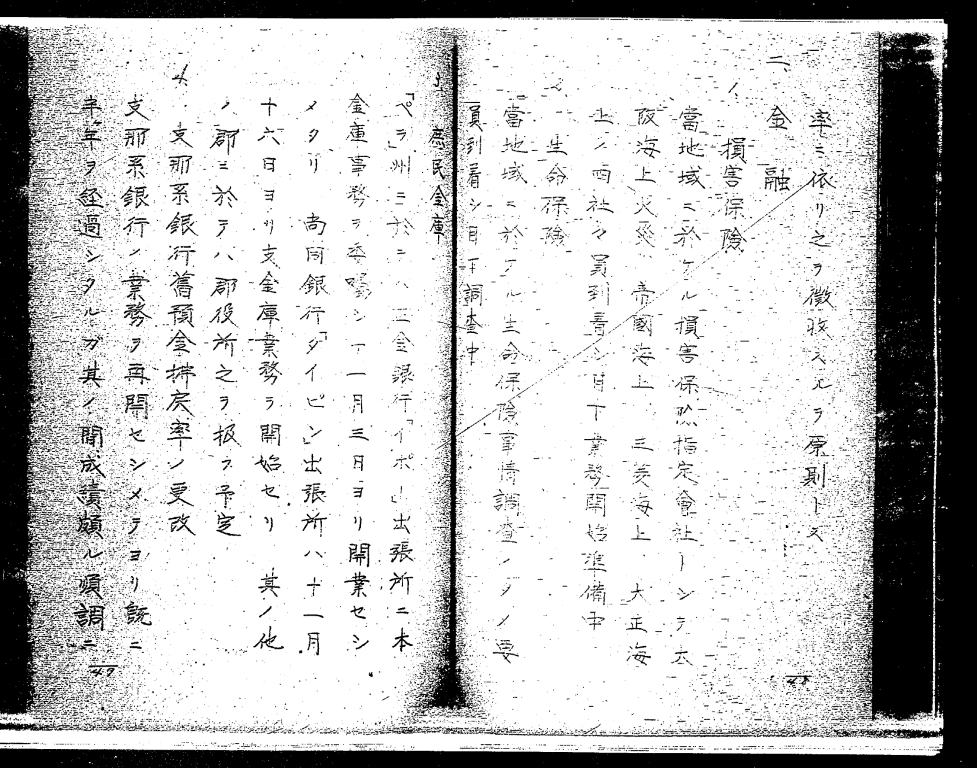 率ニ依リ之ヲ徴收スルヲ原則トス
二、
金融
1.
損害保險
當地域ニ於ケル損害保險指定會社トシテ大
阪海上火災、帝國海上、三菱海上、大正海
上ノ四社々員到着シ目下業務開始準備中
2.
生命保險
當地域ニ於ケル生命保險事情調査ノタメ要
員到着シ目下調査中
3.
庶民金庫
「ペラ」州ニ於テハ正金銀行「イポ」出張所ニ本
金庫事務ヲ委囑シ十一月三日ヨリ開業セシ
メタリ 尚同銀行「タイピン」出張所ハ十一月
十六日ヨリ支金庫業務ヲ開始セリ 其ノ他
ノ郡ニ於テハ郡役所之ヲ扱フ予定
4.
支那系銀行舊預金拂戻率ノ更改
支那系銀行ノ業務ヲ再開セシメテヨリ既ニ
半年ヲ経過シタルガ其ノ間成績頗ル順調ニ